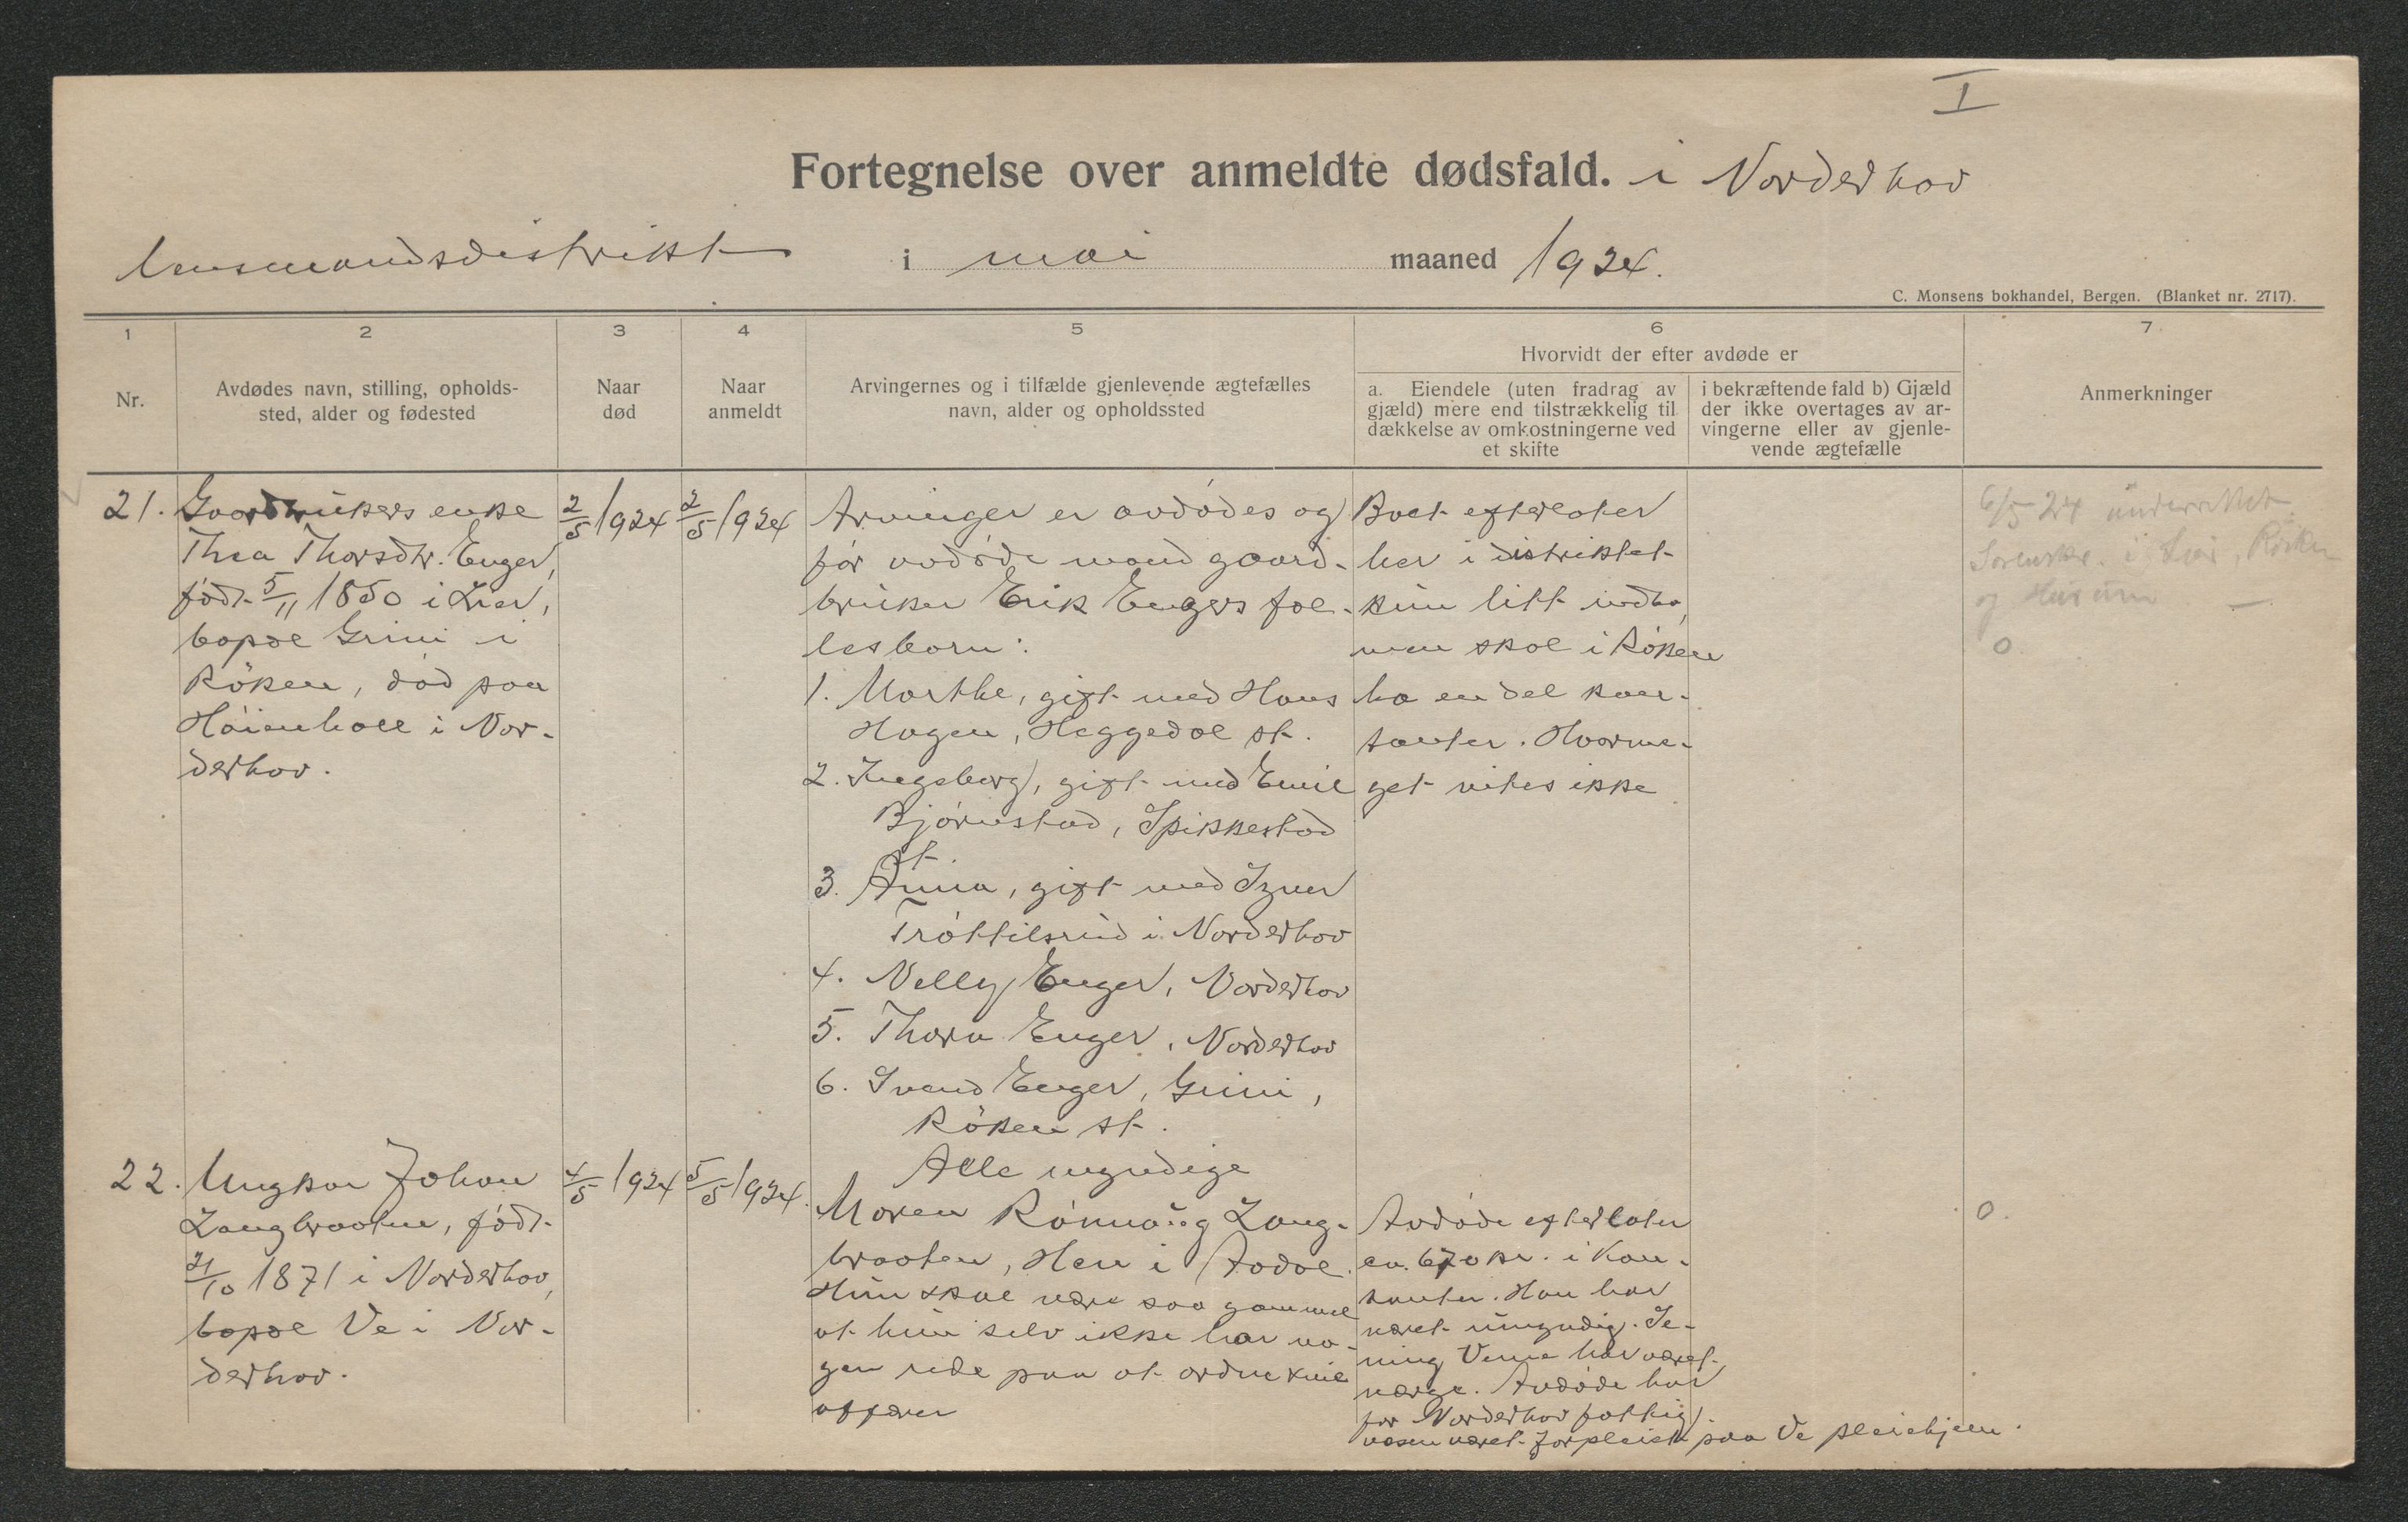 I
Fortegnelse over anmeldte dødsfald. i Norderhov
lensmandsdistrikt i mai maaned 1924.
C. Monsens bokhandel, Bergen. (Blanket nr. 2717).
1
2
3
4
5
6
7
Nr.
Avdødes navn, stilling, opholds-
sted, alder og fødested
Naar
død
Naar
anmeldt
Arvingernes og i tilfælde gjenlevende ægtefælles
navn, alder og opholdssted
Hvorvidt der efter avdøde er
a. Eiendele (uten fradrag av
gjæld) mere end tilstrækkelig til
dækkelse av omkostningerne ved
et skifte
i bekræftende fald b) Gjæld
der ikke overtages av ar-
vingerne eller av gjenle-
vende ægtefælle
Anmerkninger
21.
Gaardbrukers enke
Thea Thorsdtr. Enger,
født 5/11 1850 i Lier,
bopæl Grini i
Röken, död paa
Höienhall i Nor-
derhov.
2/5 1924
2/5 1924
Arvinger er avdödes og
för avdöde mand gaard-
bruker Erik Engers fæl-
lesbarn:
1. Marthe, gift med Hans
Hagen, Heggedal st.
2. Ingeborg, gift med Emil
Björnstad, Spikkestad
st.
3. Anna, gift med Iver
Tröttilsrud i Norderhov
4. Nelly Enger, Norderhov
5. Thora Enger, Norderhov
6. Svend Enger, Grini,
Röken st.
Alle myndige
Boet efterlater
her i distriktet
kun litt indbo,
men skal i Röken
ha en del kon-
tanter. Hvorme-
get vites ikke
6/5 24 underrettet
Sorenskr. i Lier, Röken
og Hurum
0
22.
Ungkar Johan
Langbraaten, födt
21/10 1871 i Norderhov,
bopæl Ve i Nor-
derhov.
4/5 1924
5/5 1924.
Moren Rönnaug Lang-
braaten, Hen i Aadal.
Hun skal være saa gammel
at hun selv ikke har no-
gen rede paa at ordne sine
affærer
Avdöde efterlater
ca. 670 kr. i kon-
tanter. Han har
været umyndig.
har været
værge. Avdöde har
for Norderhov fattig-
væsen været forpleiet paa Ve pleiehjem.
0.